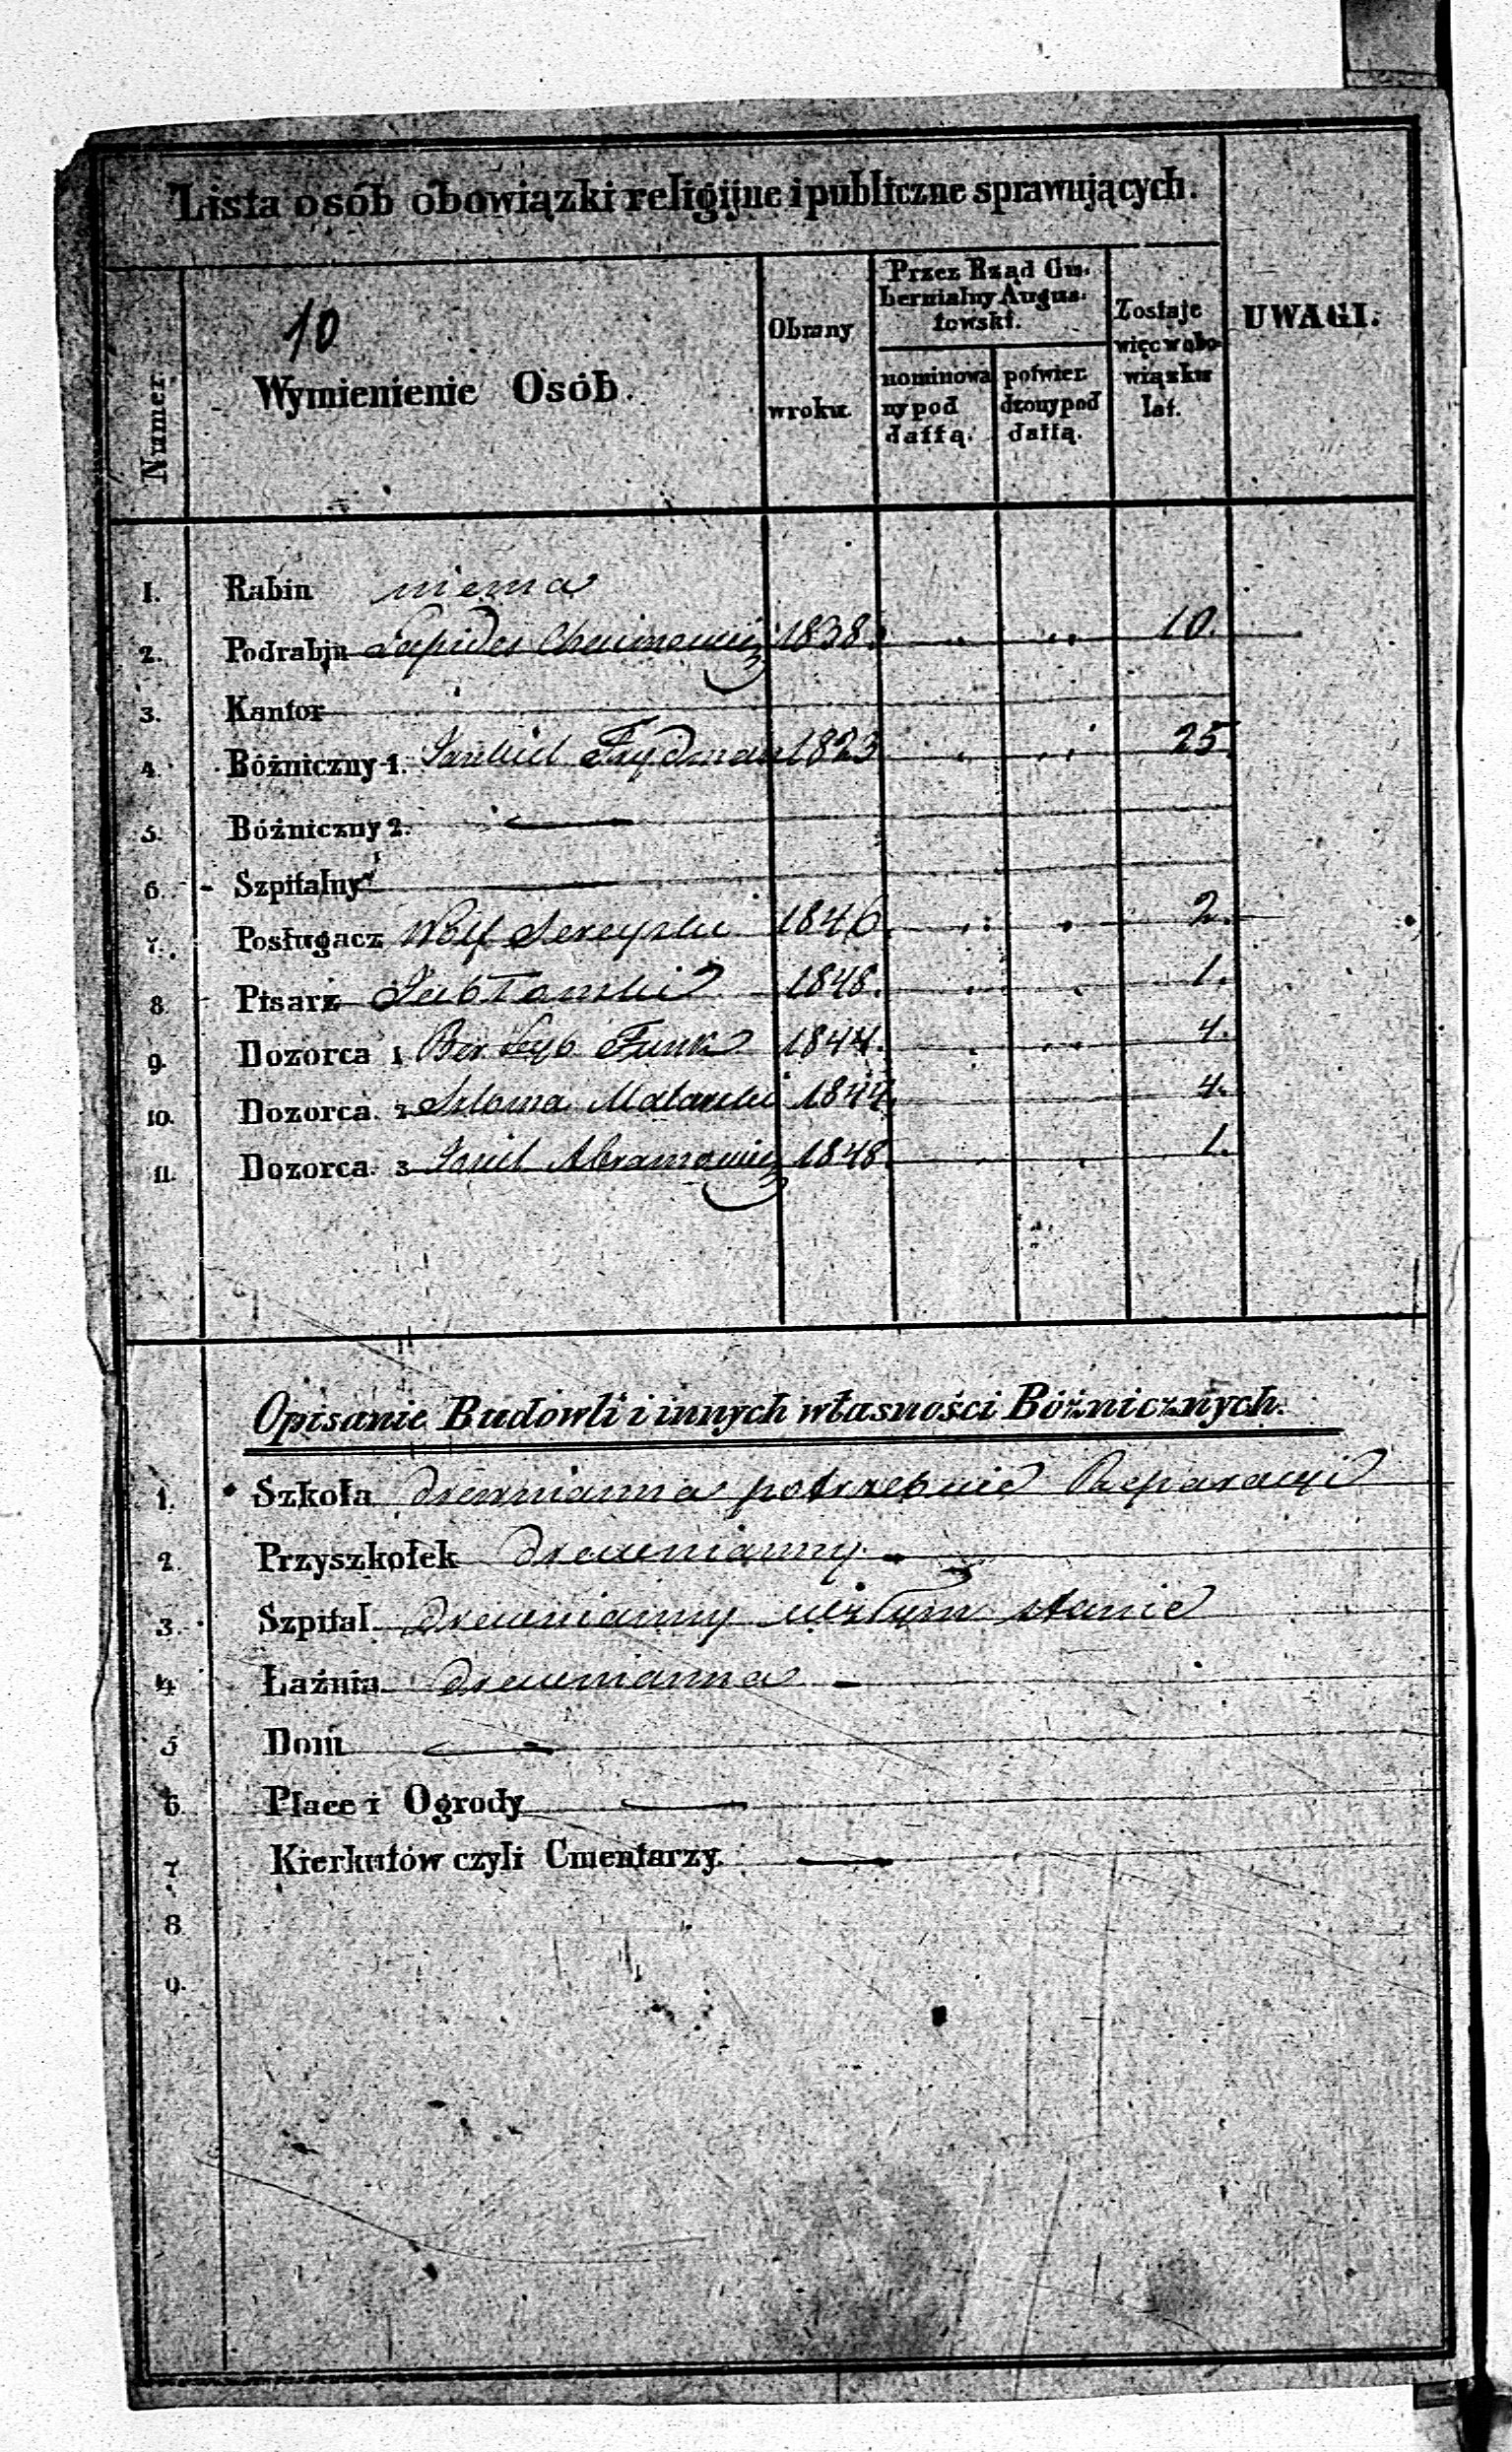 Lista osób obowiązki religijne i publiczne sprawujących.
Numer
10
Wymienienie Osób.
Obrany
w roku.
Przez Rząd Gu-
bernialny Augus-
towski.
nominowa
ny pod
dattą.
potwier
dzony pod
dattą.
Zostaje
więc w obo-
wiązku
lat.
UWAGI.
1. Rabin niema
2. Podrabin Lapides Chaimowicz 1838. " " 10.
3. Kantor
4. Bóżniczny 1. Jankiel Frydman 1823 " " 25
5. Bóżniczny 2.
6. Szpitalny
7. Posługacz Wolf Sereyski 1846 " " 2.
8. Pisarz Jabłonski 1848. " " 1.
9. Dozorca 1 Ber Leyb Funk 1844. " " 4.
10. Dozorca 2 Szloma 1844. 4.
11. Dozorca 3 Abramowicz 1848. " " 1.
Opisanie Budowli i innych własności Bóżnicznych.
1. Szkoła drewnianna potrzebuie Reparacyi
2. Przyszkołek drewnianny
3. Szpital drewnianny w złym stanie
4 Łaźnia drewnianna
5 Dom
6. Place i Ogrody
7 Kierkutów czyli Cmentarzy.
8
9.